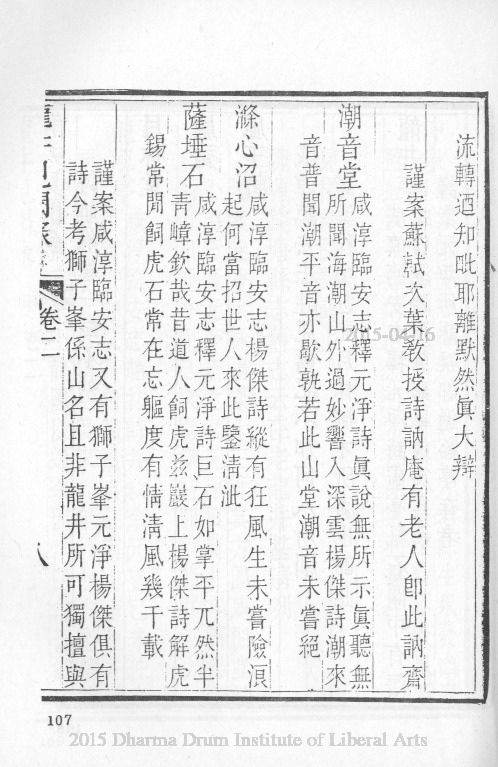 流轉迺知毗耶離默然眞大辯
謹案蘇軾次葉敎授詩訥庵有老人卽此訥齋
潮音堂
咸淳臨安志釋元淨詩眞說無所示眞聽無
所聞海潮山外過妙響入深雲楊傑詩潮來
音普聞潮平音亦歇孰若此山堂潮音未嘗絕
滌心沼
咸淳臨安志楊傑詩縱有狂風生未嘗險浪
起何當招世人來此鑒清泚
薩埵石
咸淳臨安志釋元淨詩巨石如掌平兀然半
靑嶂欽哉昔道人飼虎兹巖上楊傑詩解虎
錫常閒飼虎石常在忘軀度有情淸風幾千載
謹案咸淳臨安志又有獅子峯元淨楊傑俱有
詩今考獅子峯係山名且非龍井所可獨擅與
龍井見聞錄
卷二
八
107
2015-04-16
2015 Dharma Drum Institute of Liberal Arts